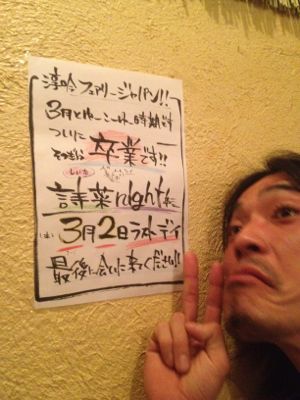 淳吟フェアリージャパン!!
3月とゆーこーゆー時期です
ついに
そつぎょう 卒業です!!
しいな
詩菜nightは
(土) 3月2日ラストデイ
最後に会いに来てください!!